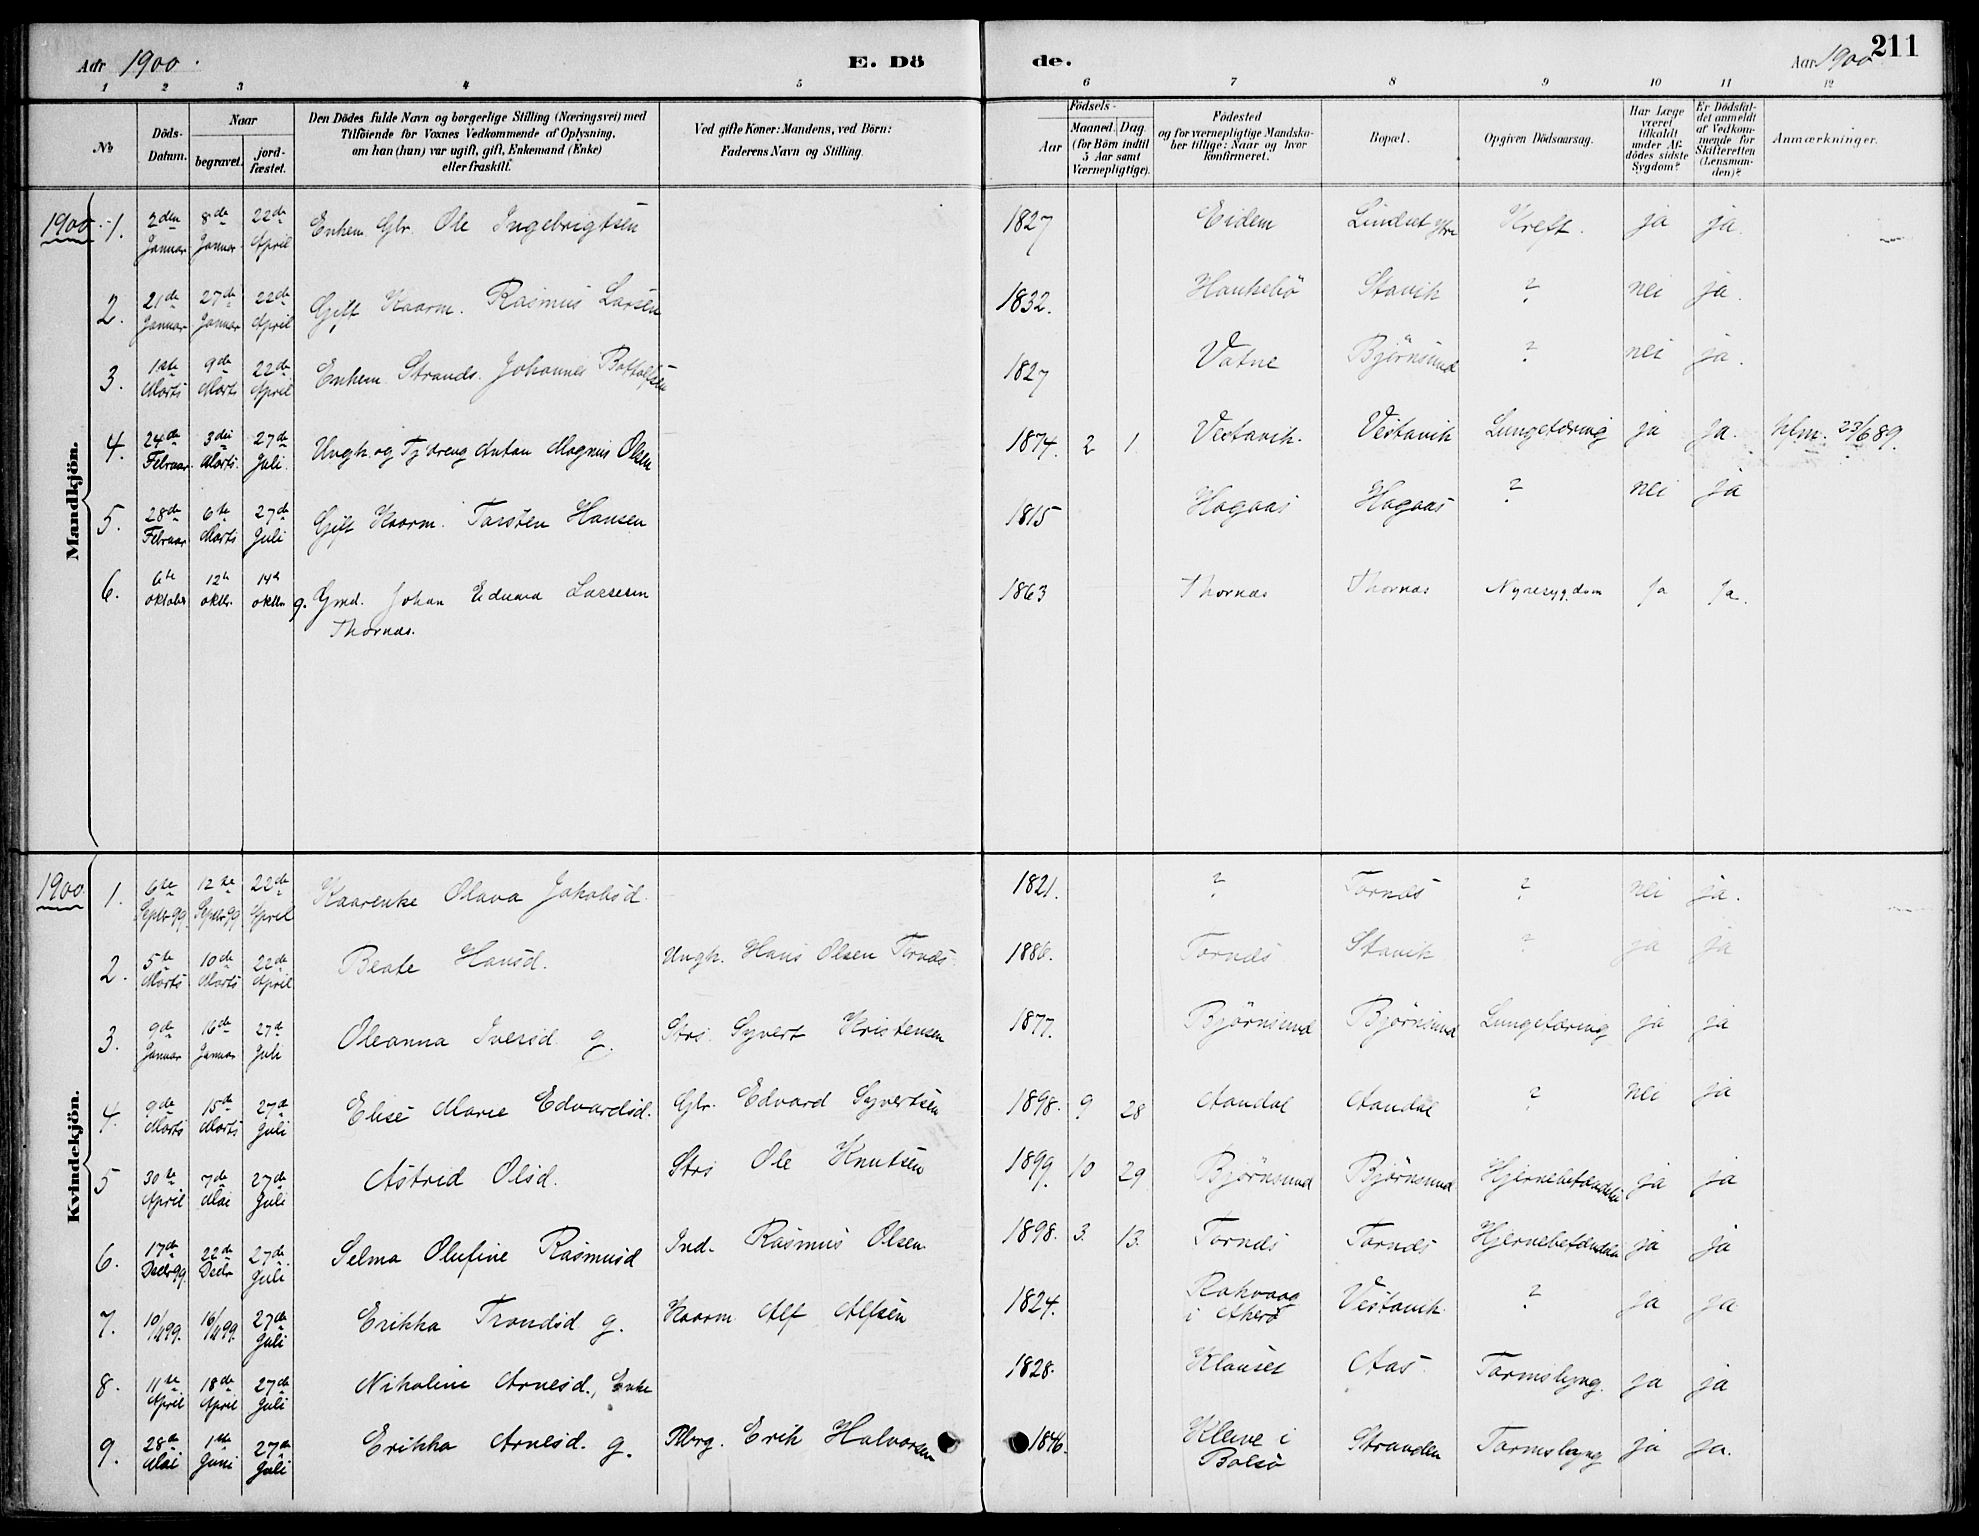 Aar 1900. E. Dö de. Aar 1900 211
1 2 3 4 5 6 7 8 9 10 11 12
No
Döds-Datum.
Naar
begravet.
jord-fæstet.
Den Dödes fulde Navn og borgerlige Stilling (Næringsvei) med
Tilföiende for Voxnes Vedkommende af Oplysning,
om han (hun) var ugift, gift, Enkemand (Enke)
eller fraskilt.
Ved gifte Koner: Mandens, ved Börn:
Faderens Navn og Stilling.
Födsels-
Aar
Maaned. Dag.
(for Börn indtil
5 Aar samt
Værnepligtige).
Födested
og for værnepligtige Mandska-
ber tillige: Naar og hvor
konfirmeret.
Bopæl.
Opgiven Dödsaarsag.
Har Læge
været
tilkaldt
under Af-
dödes sidste
Sygdom?
Er Dödsfal-
det anmeldt
af Vedkom-
mende for
Skifteretten
(Lensman-
den)?
Anmærkninger.
Mandkjön.
1900. 1. 2den Januar 8de Januar 22de April Enkem Gbr. Ole Ingebrigtsen 1827 Eidem Lindset Kreft. ja ja.
2. 21de Januar 27de Januar 22de April Gift Kaarm. Rasmus Larsen 1832. Haukebö Stavik ? nei ja.
3. 1ste Marts 9de Marts 22de April Enkem Strands. Johannes Bottolfsen 1827 Vatne Björnsund ? nei ja.
4. 24de Februar 3die Marts 27de Juli Ungk. og Tj.dreng Anton Magnus Olsen 1874. 2 1. Vestavik. Vestavik Lungetæring ja ja. 23/6 89.
5. 28de Februar 6te Marts 27de Juli Gift Kaarm. Torsten Hansen 1815 Hagaas Hagaas ? nei ja
6. 6te oktober 12te oktbr. 14de oktbr g. Gmd. Johan Edvard Larsen
Thornæs. 1863 Thornæs Thornæs Nyresygdom Ja Ja.
Kvindekjön.
1900. 1. 6te Septbr 99. 12te Septbr 99 22de April Kaarenke Olava Jakobsd. 1821. ? Tornæs ? nei ja.
2. 5te Marts 10de Marts 22de April Beate Hansd. Ungk. Hans Olsen Tornæs 1886. Tornæs Stavik ? ja ja
3. 9de Januar 16de Januar 27de Juli Oleanna Iversd. g. Strs. Syvert Kristensen 1877. Björnsund Björnsund Lungetæring ja ja
4. 9de Marts 15de Marts 27de Juli Elise Marie Edvardsd. Gbr. Edvard Syvertsen 1898. 9 28 Aandal Aandal ? nei ja
5 30te April 7de Mai 27de Juli Astrid Olsd. Strs Ole Knutsen 1899. 10 29. Björnsund Björnsund Hjernebetændelse ja ja
6. 17de Decbr 99. 22de Decbr 27de Juli Selma Olufine Rasmusd Ind. Rasmus Olsen 1898. 3. 13. Tornæs Tornæs Hjernebetændelse ja ja
7. 10/4 99. 16/4 99. 27de Juli Erikka Trondsd g. Kaarm Alf Alfsen 1824. Rakvaag
i Akerö Vestavik. ? ja ja
8. 11te April 18de April 27de Juli Nikoline Arnesd., Enke 1828. Klauset Aas Tarmslyng. ja ja
9. 28de Mai 1ste Juni 27de Juli Erikka Arnesd. g. Plbrg. Erik Halvorsen 1846. Kleive i
Bolsö Stranden Tarmslyng ja ja.